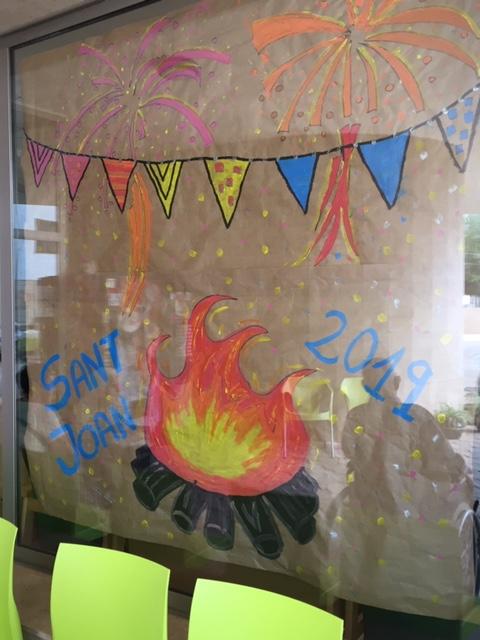 SANT
JOAN
2019